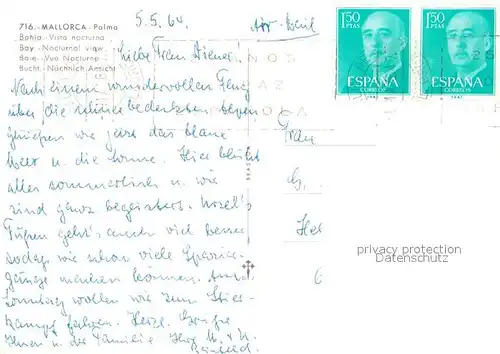 716.-MALLORCA-Palma
Bahia-Vista nocturna
Bay-Nocturnal view
Baie-Vue Nocturne
Bucht-Nächtlich Ansicht
5.5.64.
Liebe Frau Diener
Nach einem wundervollen Flug
über die schneebedeckten Alpen
genießen wir jetzt das blaue
Meer u. die Sonne. Hier blüht
alles sommerlich u. wir
sind ganz begeistert.
Füßen geht's auch viel besser
sodaß wir schon viele Spazier-
gänge machen können. Am
Sonntag wollen wir zum Stier-
kampf fahren. Herzl. Grüße
Ihnen u. der Familie
1'50
PTAS
ESPAÑA
CORREOS
1'50
PTAS
ESPAÑA
CORREOS
Frau
privacy protection
DOMMUSEUM.DE